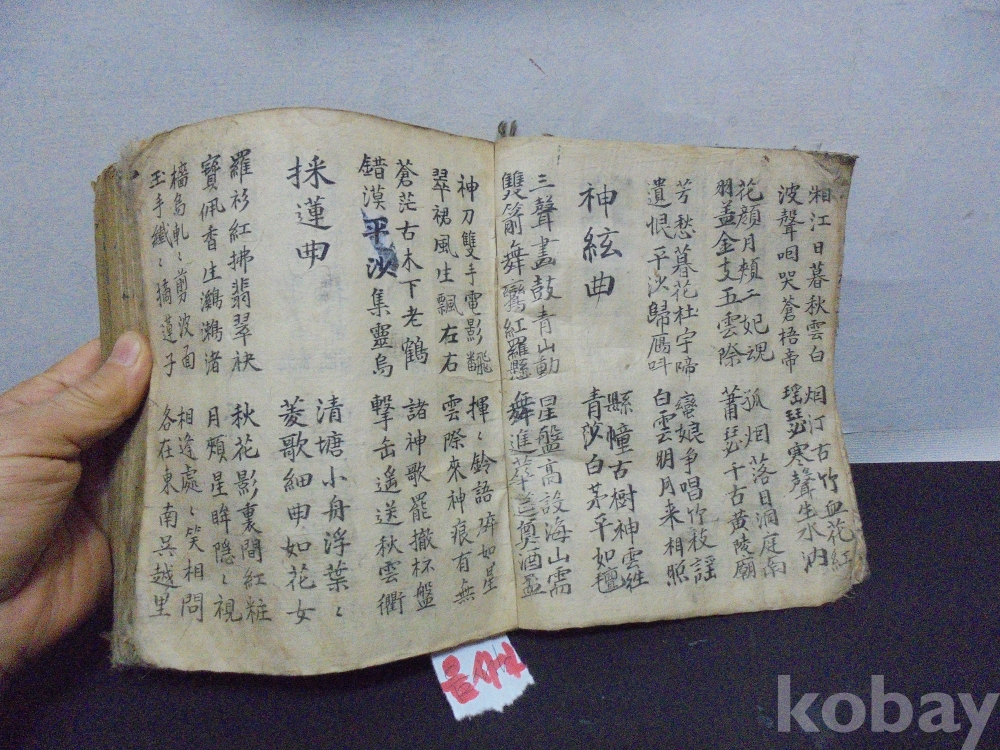 湘江日暮秋雲白 烟汀古竹血花紅
波聲咽哭蒼梧帝 瑶瑟寒聲生水
花顔月頰二妃魂 孤烟落日洞庭南
羽盖金支五雲除 蕭瑟千古黄陵廟
芳愁暮花杜宇啼 蠻娘争唱竹枝謡
遺恨平沙歸鴈呌 白雲明月来相照
神絃曲
三聲畫鼓青山動 縣幢古樹神雲
雙箭舞鸞紅羅縣 青沙白茅平如
星盤高設海山需
舞進華 奠酒
神刀雙手電影飜 揮〻鈴語 如星
翠裙風生飄右右 雲際來神痕有無
蒼茫古木下老鶴 諸神歌罷撤杯盤
錯漠平沙集靈烏 擊缶遙送秋雲衢
採蓮曲
清塘小舟浮葉〻
菱歌細曲如花女
羅衫紅拂翡翠袂 秋花影裏間紅粧
寶佩香生鸂鶒渚 月頰星眸隠〻視
檣烏軋〻剪波面 相逢處〻笑相問
玉手纖〻摘蓮子 各在東南吳越里
kobay